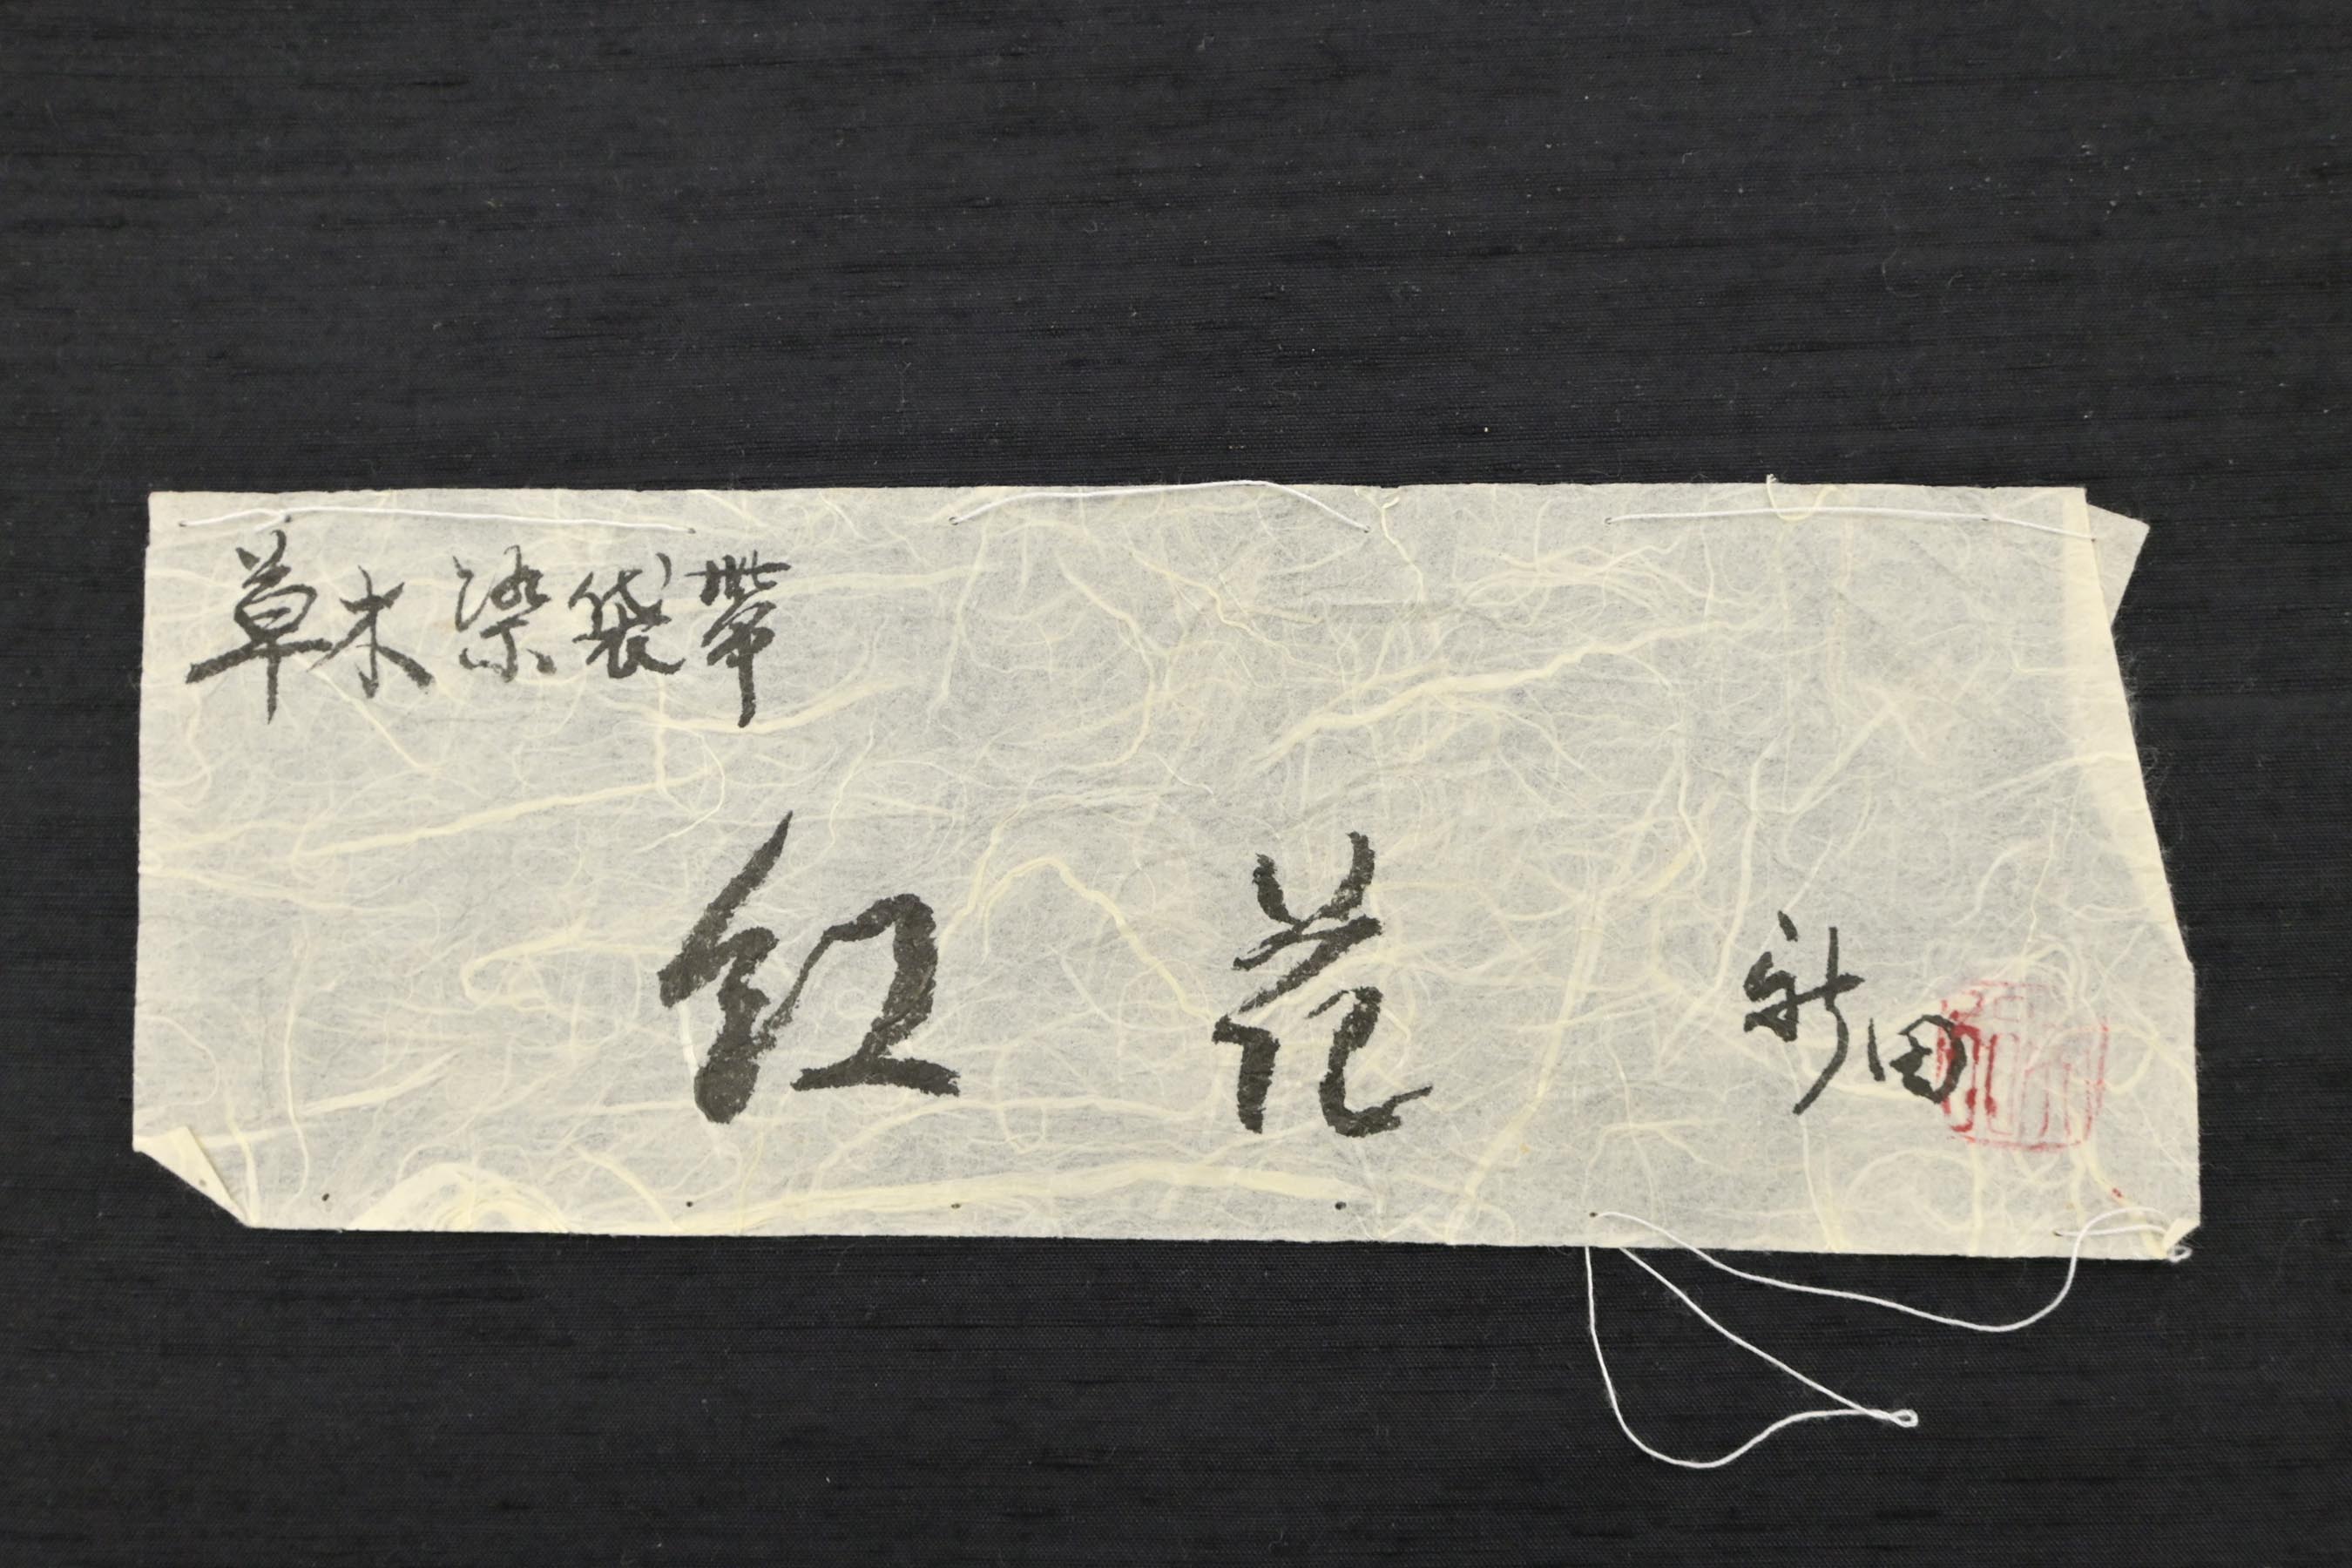 草木染袋帯
紅花
新田